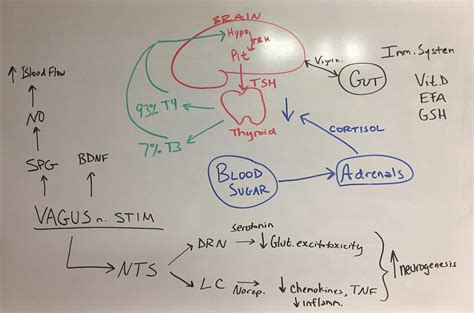 BRAIN
Hypo
TRH
Pit
TSH
Thyroid
93% T4
7% T3
Vagus n.
GUT
Imm. System
Vit. D
EFA
GSH
↓
CORTISOL
BLOOD
SUGAR
Adrenals
↑ Blood Flow
NO
SPG
BDNF
VAGUS n. STIM
NTS
DRN
serotonin
↓ Glut. excitotoxicity
LC
Norep.
↓ Chemokines, TNF
↓ inflamm.
↑ neurogenesis